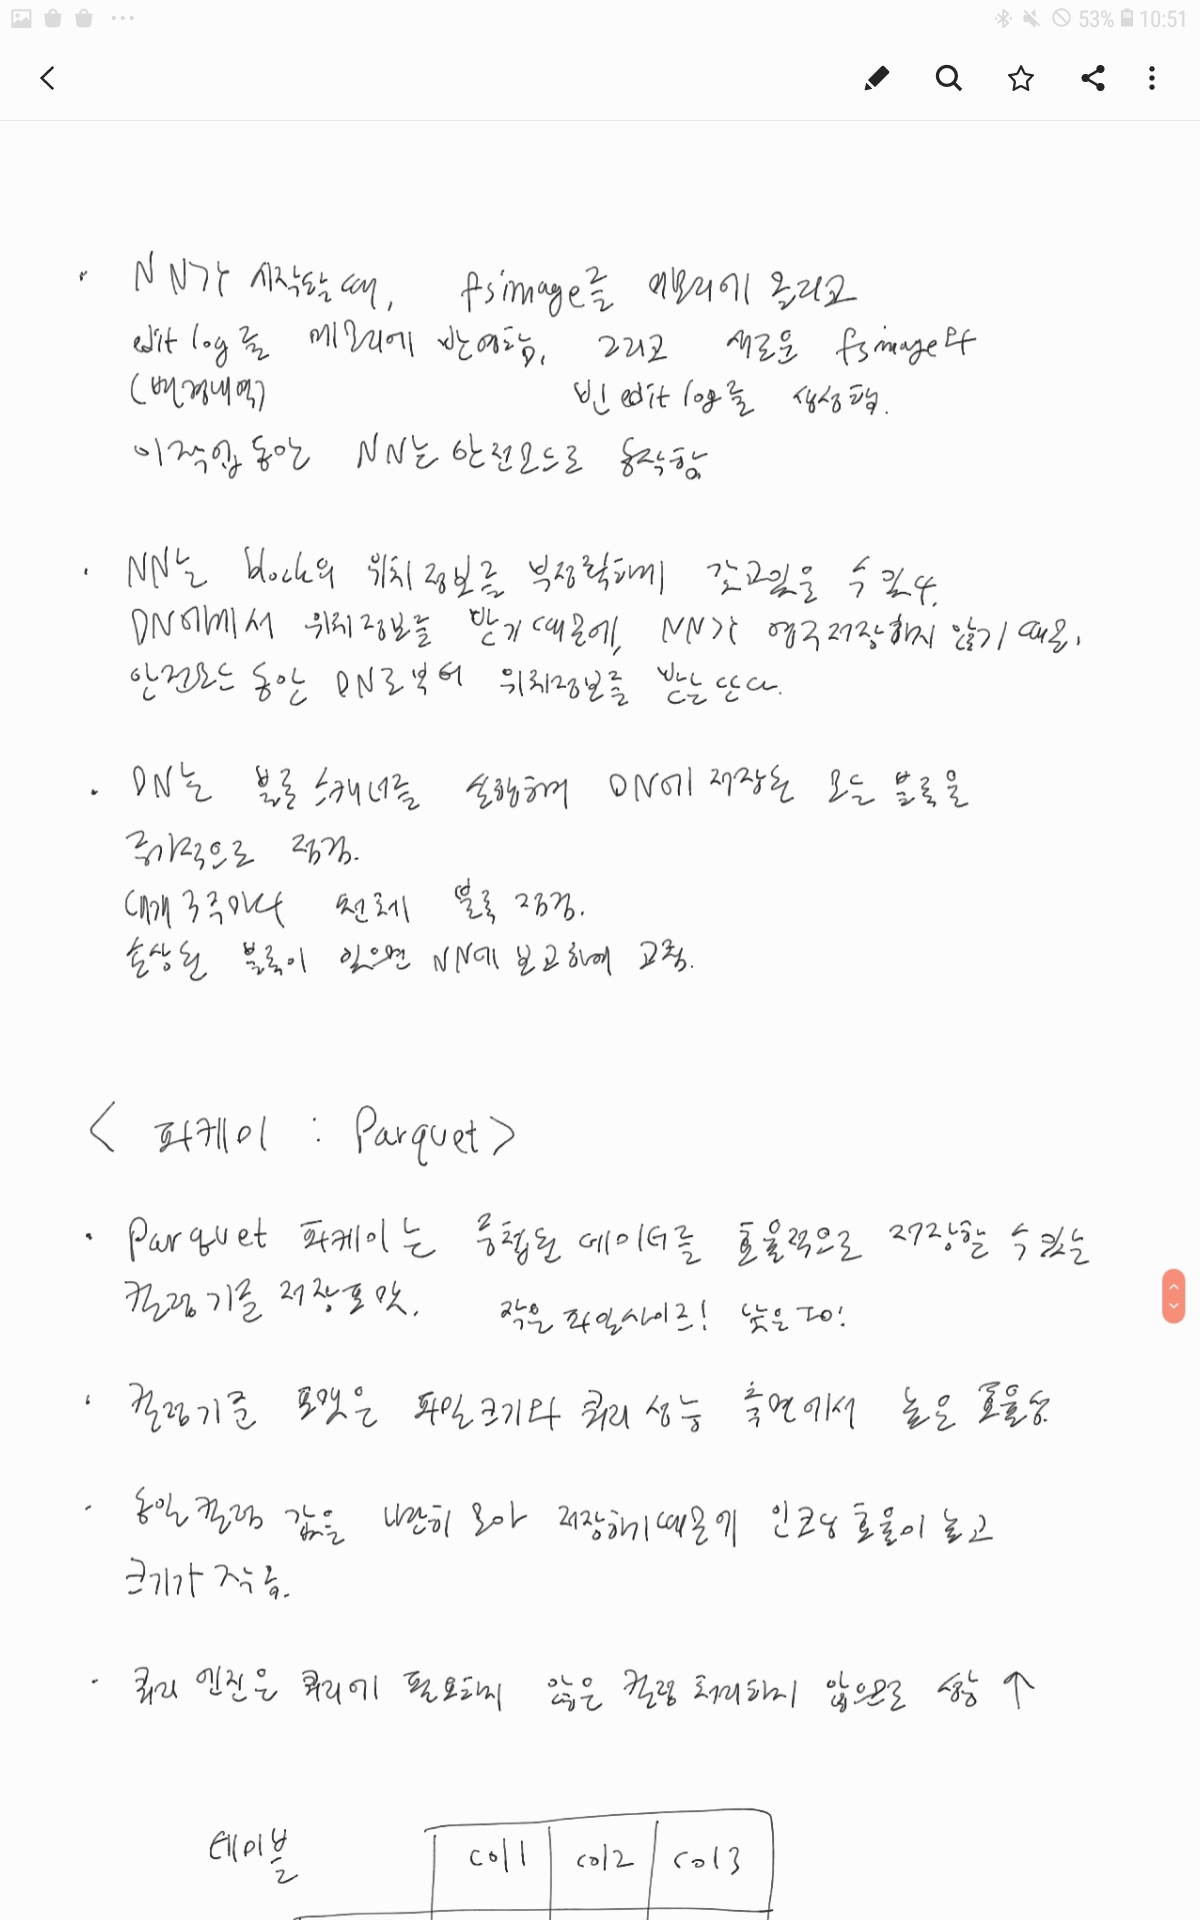 53% 10:51
· NN가 시작할 때, fsimage를 메모리에 올리고
edit log를 메모리에 반영함. 그리고 새로운 fsimage와
(변경내역) 빈 edit log를 생성함.
이 작업 동안 NN는 안전모드로 동작함
· NN는 block의 위치정보를 부정확하게 갖고있을 수 있다.
DN에게서 위치정보를 받기 때문에, NN가 영구저장하지 않기 때문,
안전모드 동안 DN로부터 위치정보를 받는단다.
· DN는 블록 스캐너를 실행하여 DN에 저장된 모든 블록을
주기적으로 점검.
대개 3주마다 전체 블록 점검.
손상된 블록이 있으면 NN에 보고하여 고침.
< 파케이 : Parquet >
· Parquet 파케이는 중첩된 데이터를 효율적으로 저장할 수 있는
컬럼기준 저장포맷. 작은 파일사이즈! 낮은 IO!
· 컬럼기준 포맷은 파일크기와 쿼리 성능 측면에서 높은 효율성.
· 동일컬럼 값을 나란히 모아 저장하기때문에 인코딩 효율이 높고
크기가 작음.
· 쿼리 엔진은 쿼리에 필요하지 않은 컬럼 처리하지 않으므로 성능 ↑
테이블 col1 col2 col3